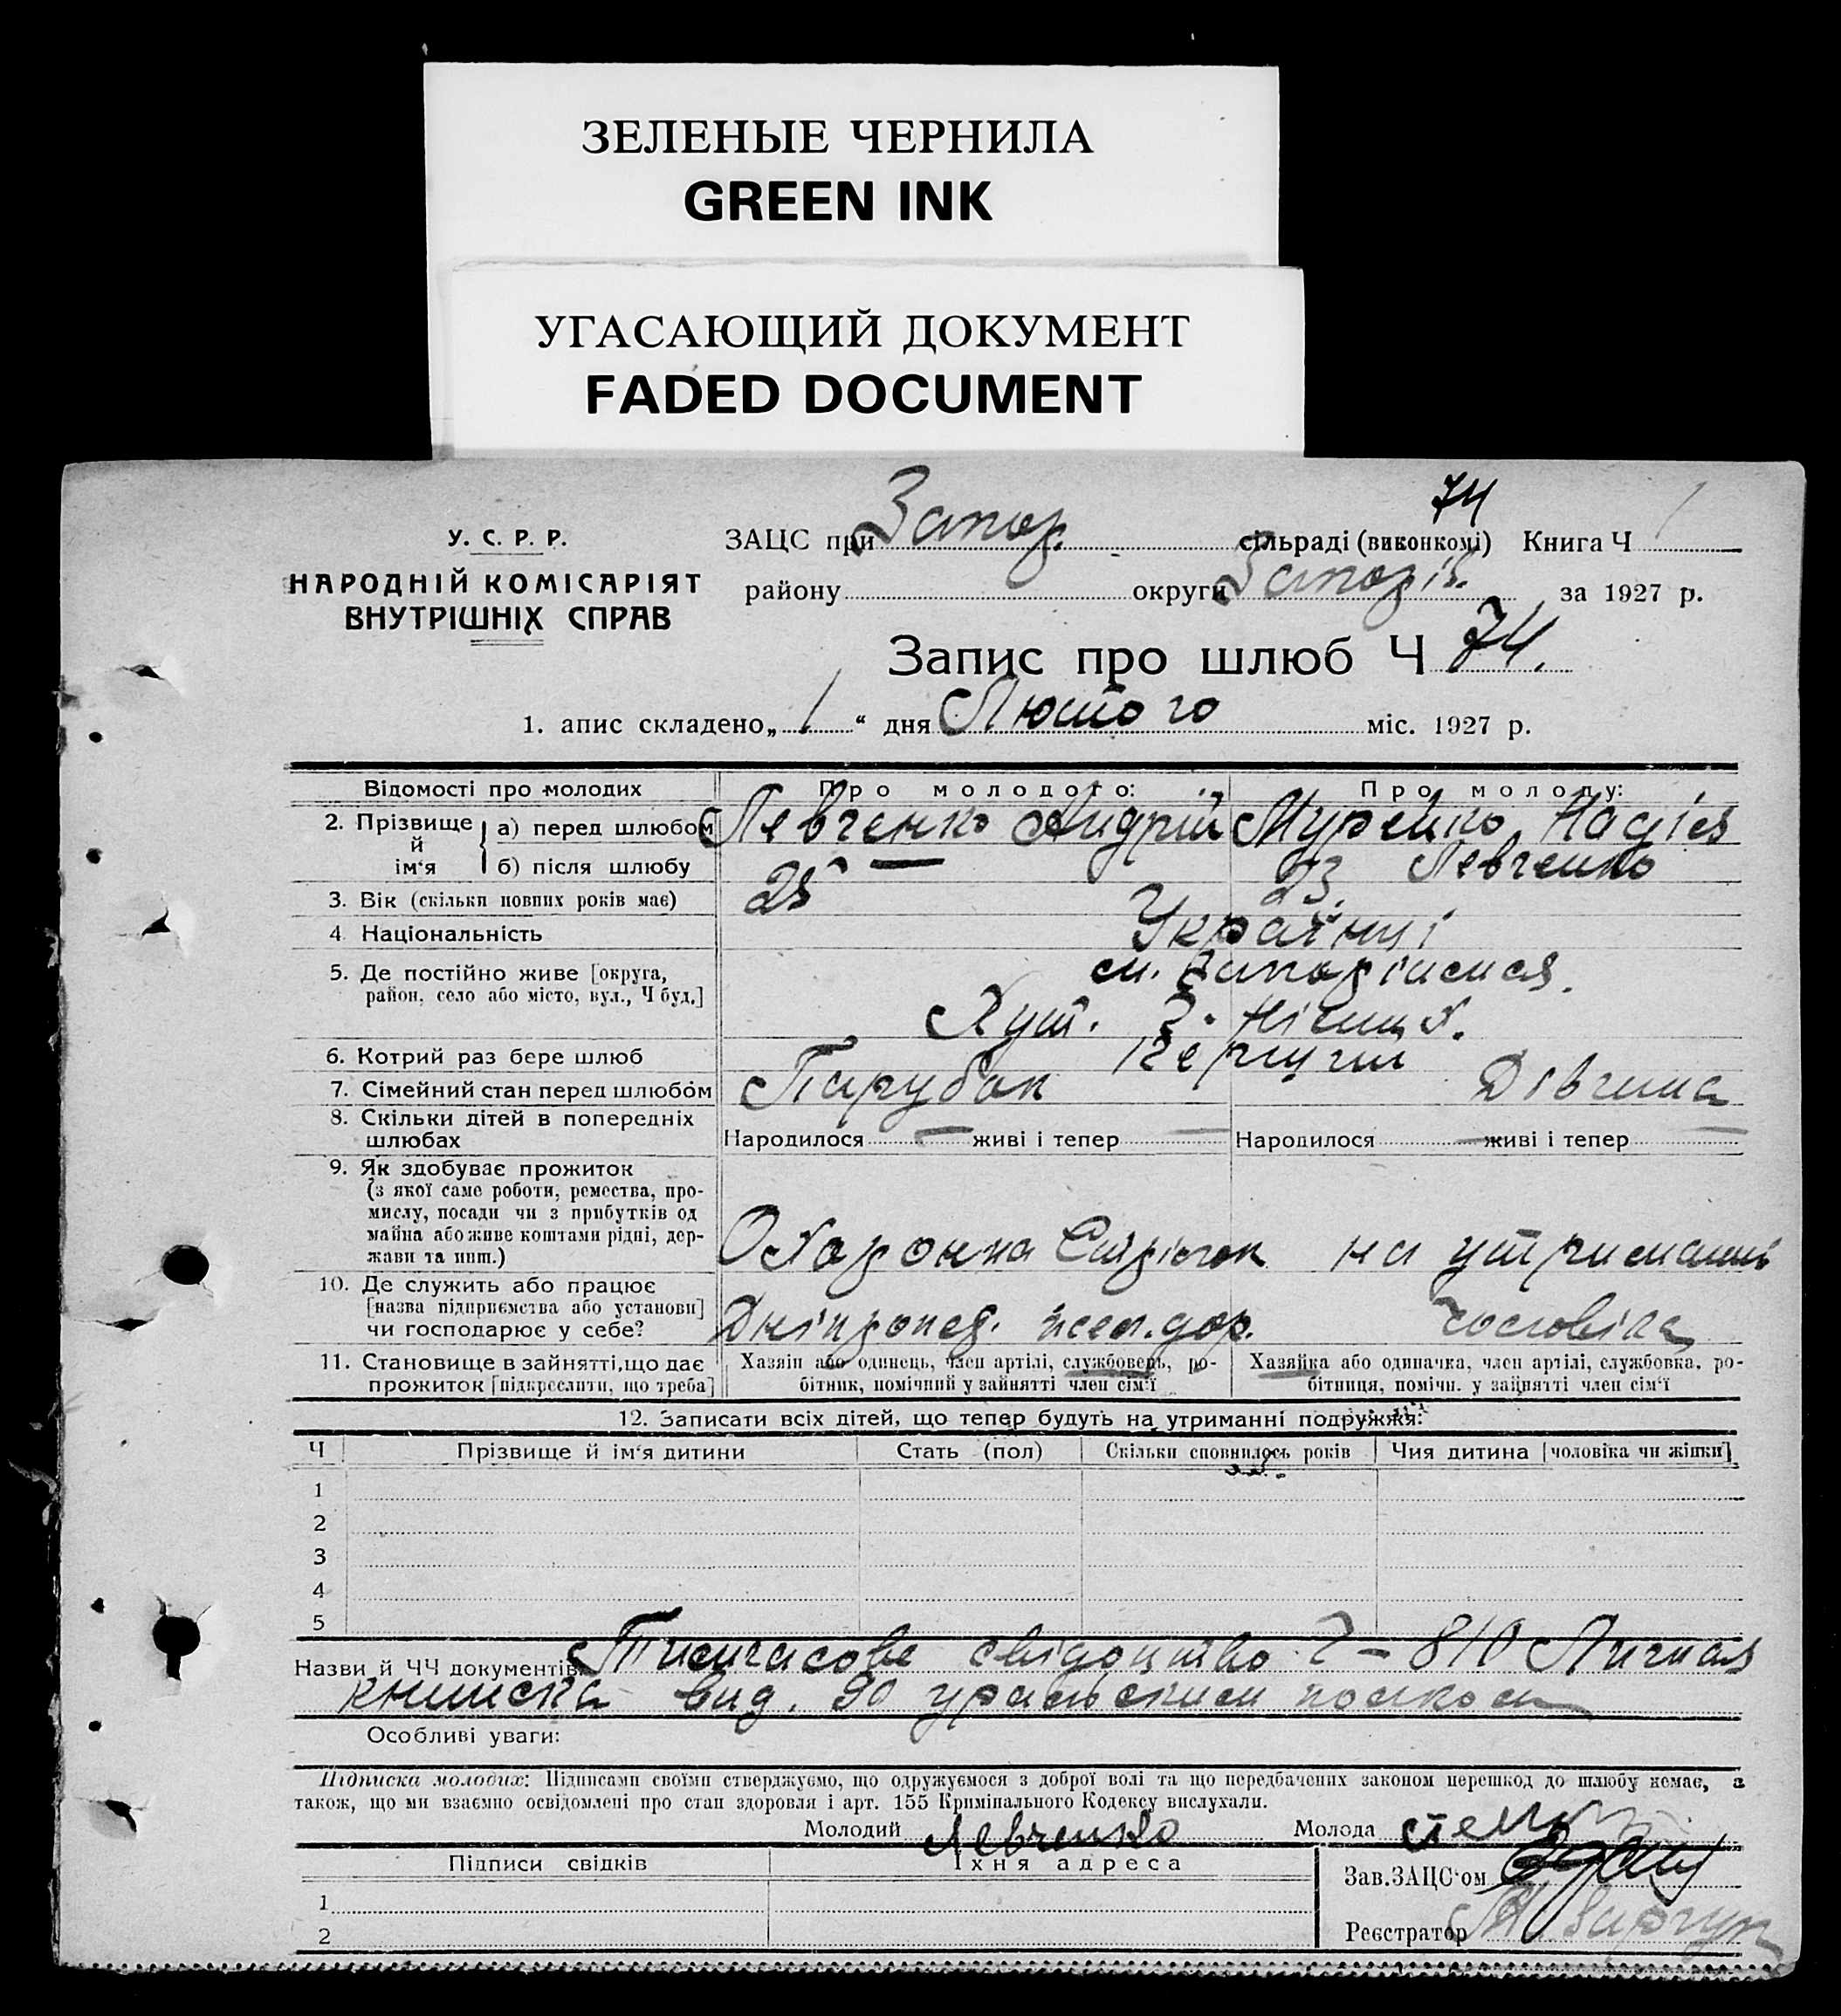 ЗЕЛЕНЫЕ ЧЕРНИЛА
GREEN INK
УГАСАЮЩИЙ ДОКУМЕНТ
FADED DOCUMENT
74
У. С. Р. Р.
НАРОДНІЙ КОМІСАРІЯТ
ВНУТРІШНІХ СПРАВ
ЗАЦС при Запор. сільраді (виконкомі) Книга Ч 1
району округи Запоріз. за 1927 р.
Запис про шлюб Ч 74.
1. апис складено „ 1 “ дня Лютого міс. 1927 р.
Відомості про молодих Про молодого: Про молоду:
2. Прізвище й ім‘я а) перед шлюбом Левченко Андрій Надія
б) після шлюбу — Левченко
3. Вік (скільки повних років має) 25 23.
4. Національність Українці
5. Де постійно живе [округа, м.
район, село або місто, вул., Ч буд.] Хут.
6. Котрий раз бере шлюб
7. Сімейний стан перед шлюбом Парубок Дівчина
8. Скільки дітей в попередніх
шлюбах Народилося — живі і тепер — Народилося — живі і тепер —
9. Як здобуває прожиток
(з якої саме роботи, ремества, про-
мислу, посади чи з прибутків од
майна або живе коштами рідні, дер-
жави та инш.) Охоронна на утриманні
10. Де служить або працює
[назва підприємства або установи]
чи господарює у себе? чоловіка
11. Становище в зайнятті, що дає Хазяїн або одинець, член артілі, службовець, ро- Хазяйка або одиначка, член артілі, службовка, ро-
прожиток [підкреслити, що треба] бітник, помічний у зайнятті член сім‘ї бітниця, помічн. у зайнятті член сім‘ї
12. Записати всіх дітей, що тепер будуть на утриманні подружжя:
Ч Прізвище й ім‘я дитини Стать (пол) Скільки сповнилось років Чия дитина [чоловіка чи жінки]
1
2
3
4
5
Назви й ЧЧ документів: Тимчасове свідоцтво 810 Лична
книжка вид. 90 уральским полком
Особливі уваги:
Підписка молодих: Підписами своїми стверджуємо, що одружуємося з доброї волі та що передбачених законом перешкод до шлюбу немає, а
також, що ми взаємно освідомлені про стан здоровля і арт. 155 Кримінального Кодексу вислухали.
Молодий Левченко Молода
Підписи свідків Їхня адреса Зав. ЗАЦС‘ом
1
2 Реєстратор